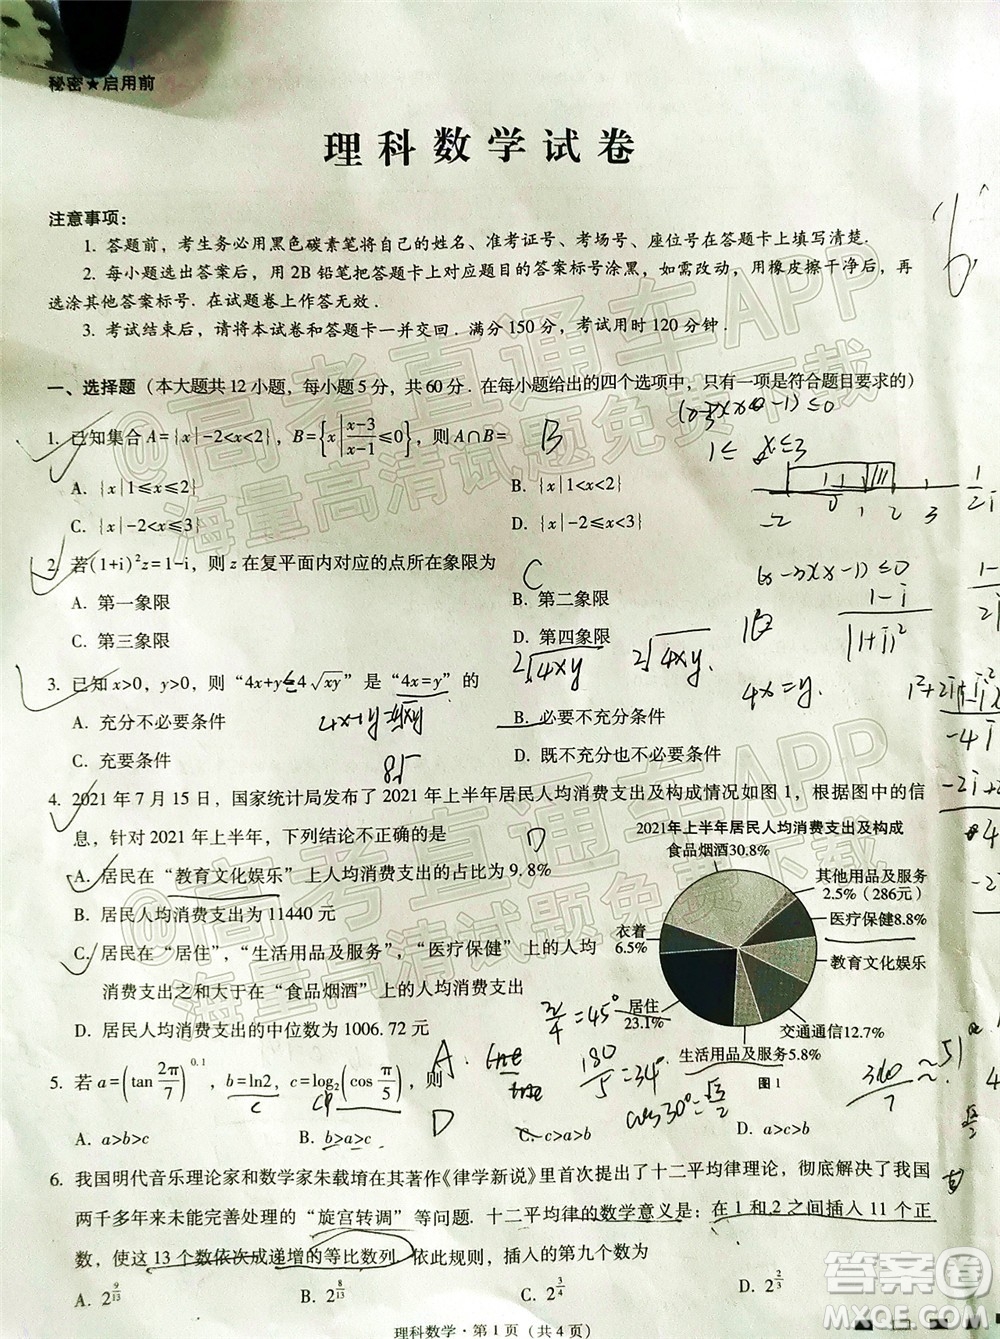 秘密★启用前
理科数学试卷
注意事项：
1. 答题前，考生务必用黑色碳素笔将自己的姓名、准考证号、考场号、座位号在答题卡上填写清楚.
2. 每小题选出答案后，用2B铅笔把答题卡上对应题目的答案标号涂黑，如需改动，用橡皮擦干净后，再
选涂其他答案标号. 在试题卷上作答无效.
3. 考试结束后，请将本试卷和答题卡一并交回. 满分150分，考试用时120分钟.
一、选择题（本大题共12小题，每小题5分，共60分. 在每小题给出的四个选项中，只有一项是符合题目要求的）
1. 已知集合A={x|-2<x<2}，B={x|(x-3)/(x-1)≤0}，则A∩B= B
A. {x|1≤x≤2}
B. {x|1<x<2}
C. {x|-2<x≤3}
D. {x|-2≤x<3}
1≤x≤3
-2 0 1 2 3
2. 若(1+i)²z=1-i，则z在复平面内对应的点所在象限为 C
A. 第一象限
B. 第二象限
C. 第三象限
D. 第四象限
(x-3)(x-1)≤0
3. 已知x>0，y>0，则“4x+y≥4√xy”是“4x=y”的
A. 充分不必要条件
B. 必要不充分条件
C. 充要条件
D. 既不充分也不必要条件
2√4xy 2√4xy
4x=y.
4. 2021年7月15日，国家统计局发布了2021年上半年居民人均消费支出及构成情况如图1，根据图中的信
息，针对2021年上半年，下列结论不正确的是 D
A. 居民在“教育文化娱乐”上人均消费支出的占比为9.8%
B. 居民人均消费支出为11440元
C. 居民在“居住”，“生活用品及服务”，“医疗保健”上的人均
消费支出之和大于在“食品烟酒”上的人均消费支出
D. 居民人均消费支出的中位数为1006.72元
2021年上半年居民人均消费支出及构成
食品烟酒30.8%
其他用品及服务
2.5%（286元）
医疗保健8.8%
教育文化娱乐
交通通信12.7%
生活用品及服务5.8%
居住
23.1%
衣着
6.5%
图1
5. 若a=(tan 2π/7)^0.1，b=ln2，c=log₂(cos π/5)，则
A. a>b>c
B. b>a>c
C. c>a>b
D. a>c>b
cos30°=√3/2
6. 我国明代音乐理论家和数学家朱载堉在其著作《律学新说》里首次提出了十二平均律理论，彻底解决了我国
两千多年来未能完善处理的“旋宫转调”等问题. 十二平均律的数学意义是：在1和2之间插入11个正
数，使这13个数依次成递增的等比数列. 依此规则，插入的第九个数为
A. 2^(9/13)
B. 2^(8/13)
C. 2^(3/4)
D. 2^(2/3)
理科数学·第1页（共4页）
@高考直通车APP
海量高清试题免费下载
@高考直通车APP
海量高清试题免费下载
答案圈
MXQE.COM